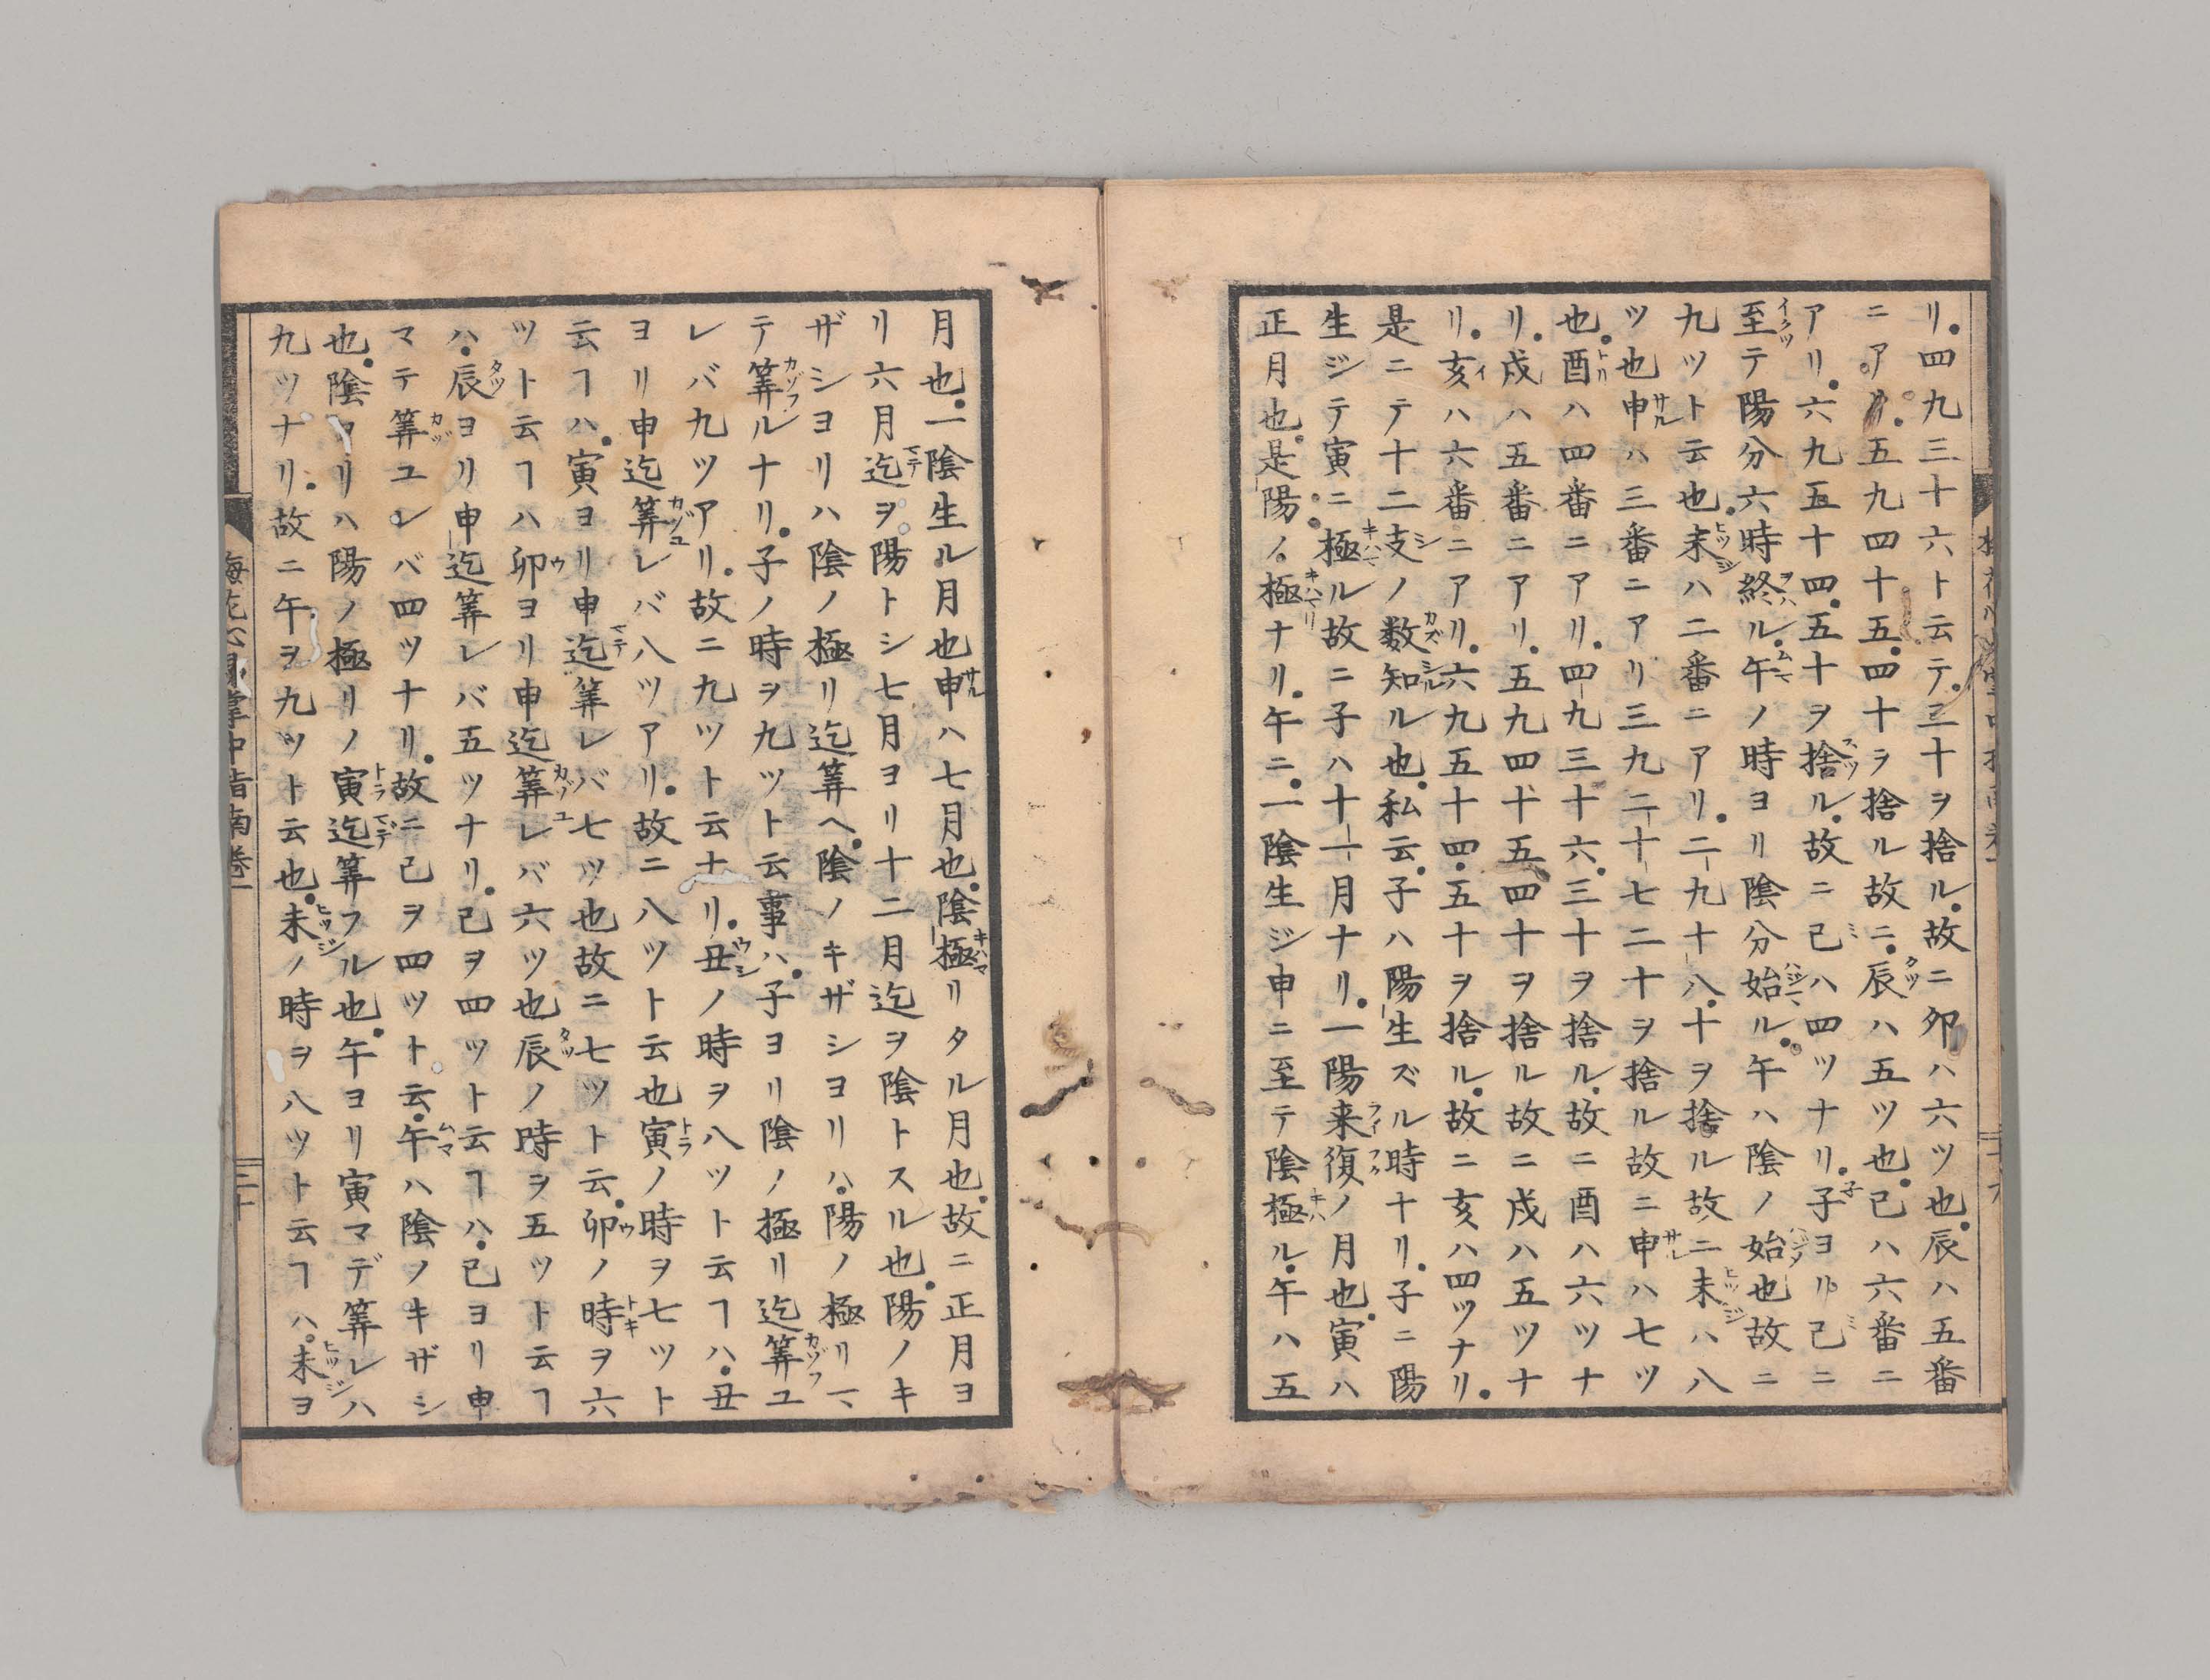 リ。四九三十六ト云テ。三十ヲ捨ル。故ニ卯ハ六ツ也。辰ハ五番
ニアリ。五九四十五。四十ヲ捨ル故ニ。辰ハ五ツ也。巳ハ六番ニ
アリ。六九五十四。五十ヲ捨ル。故ニ巳ハ四ツナリ。子ヨリ巳ニ
至テ陽分六時終ル。午ノ時ヨリ陰分始ル。午ハ陰ノ始也故ニ
九ツト云也。未ハ二番ニアリ。二九十八。十ヲ捨ル故ニ未ハ八
ツ也申ハ三番ニアリ三九二十七二十ヲ捨ル故ニ申ハ七ツ
也。酉ハ四番ニアリ。四九三十六。三十ヲ捨ル。故ニ酉ハ六ツナ
リ。戌ハ五番ニアリ。五九四十五四十ヲ捨ル故ニ戌ハ五ツナ
リ。亥ハ六番ニアリ。六九五十四。五十ヲ捨ル。故ニ亥ハ四ツナリ。
是ニテ十二支ノ数知ル也。私云。子ハ陽生ズル時ナリ。子ニ陽
生ジテ寅ニ極ル故ニ子ハ十一月ナリ。一陽来復ノ月也。寅ハ
正月也。是陽ノ極ナリ。午ニ。一陰生ジ申ニ至テ陰極ル。午ハ五
月也。一陰生ル月也申ハ七月也。陰極リタル月也。故ニ正月ヨ
リ六月迄ヲ陽トシ七月ヨリ十二月迄ヲ陰トスル也。陽ノキ
ザシヨリハ陰ノ極リ迄筭ヘ。陰ノキザシヨリハ。陽ノ極リマ
テ筭ルナリ。子ノ時ヲ九ツト云事ハ。子ヨリ陰ノ極リ迄筭ユ
レバ九ツアリ。故ニ九ツト云ナリ。丑ノ時ヲ八ツト云ヿハ。丑
ヨリ申迄筭レバ八ツアリ。故ニ八ツト云也寅ノ時ヲ七ツト
云ヿハ。寅ヨリ申迄筭レバ七ツ也故ニ七ツト云。卯ノ時ヲ六
ツト云ヿハ卯ヨリ申迄筭レバ六ツ也辰ノ時ヲ五ツト云ヿ
ハ。辰ヨリ申迄筭レバ五ツナリ。巳ヲ四ツト云ヿハ。巳ヨリ申
マテ筭ユレバ四ツナリ。故ニ巳ヲ四ツト云。午ハ陰ノキザシ
也。陰ヨリハ陽ノ極リノ寅迄筭フル也。午ヨリ寅マデ筭レハ
九ツナリ。故ニ午ヲ九ツト云也。未ノ時ヲ八ツト云ヿハ。未ヨ
三十